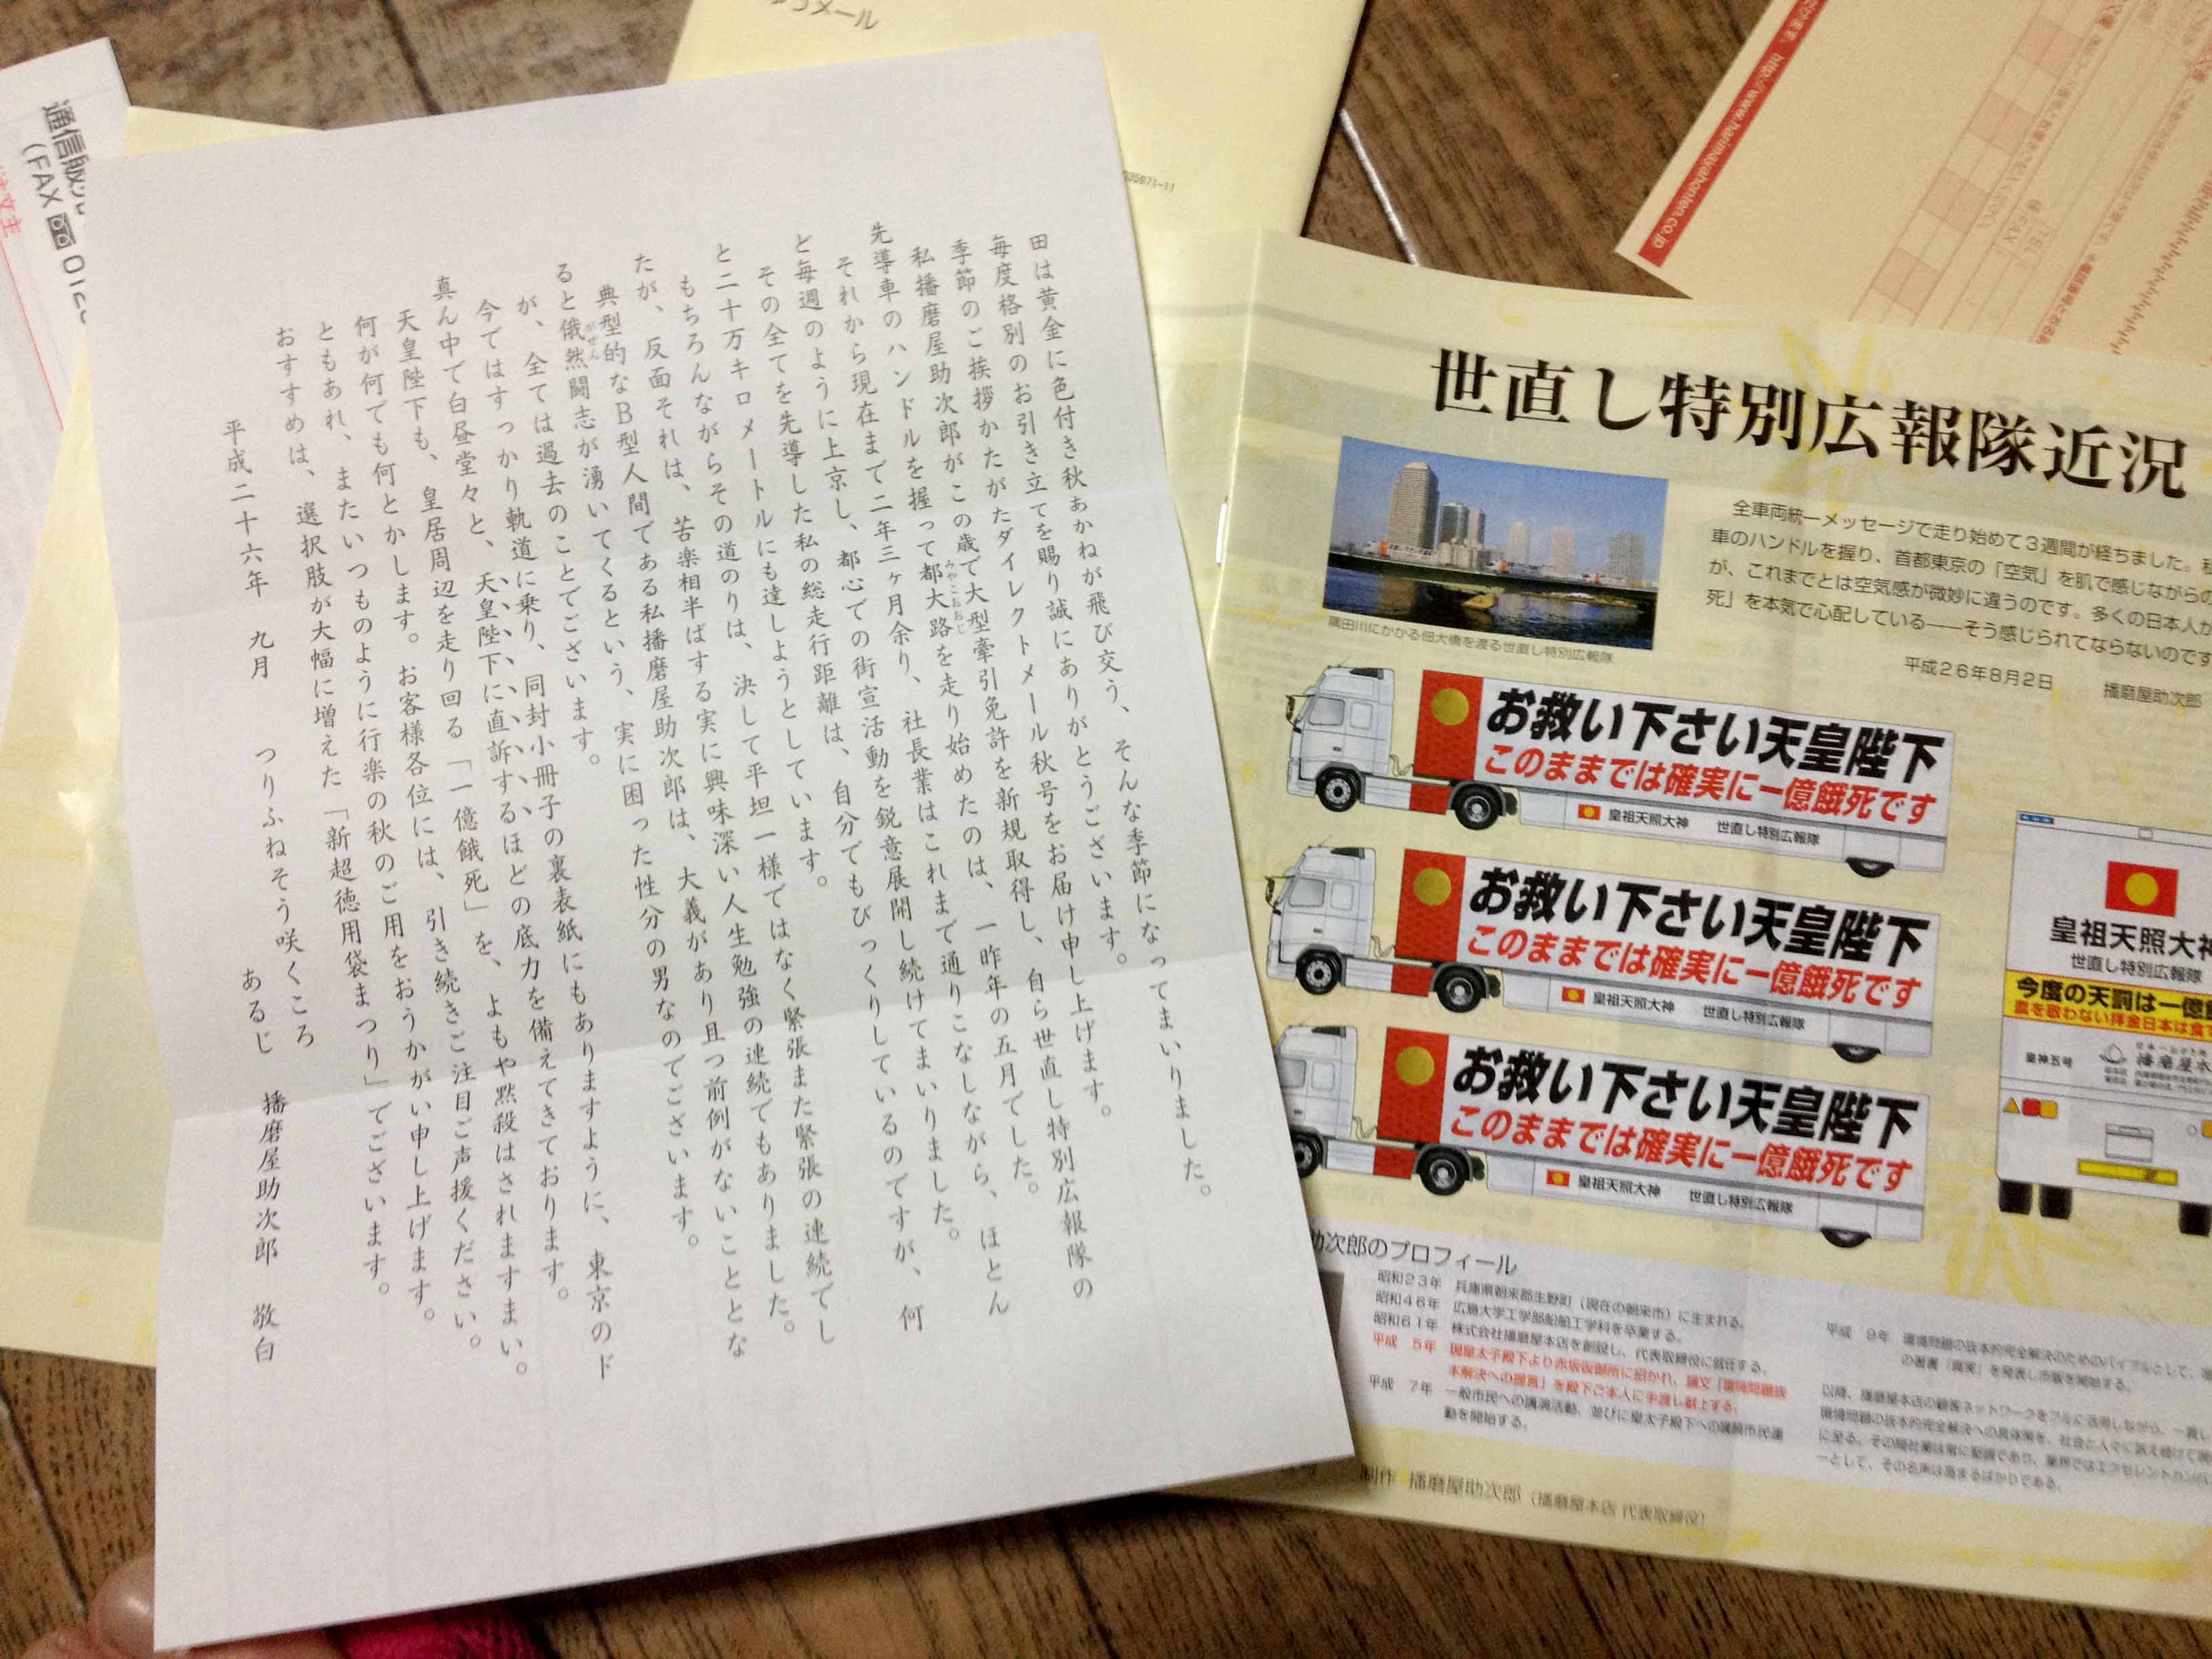 田は黄金に色付き秋あかねが飛び交う、そんな季節になってまいりました。
毎度格別のお引き立てを賜り誠にありがとうございます。
季節のご挨拶かたがたダイレクトメール秋号をお届け申し上げます。
私播磨屋助次郎がこの歳で大型牽引免許を新規取得し、自ら世直し特別広報隊の
先導車のハンドルを握って都大路を走り始めたのは、一昨年の五月でした。
それから現在まで二年三ヶ月余り、社長業はこれまで通りこなしながら、ほとん
ど毎週のように上京し、都心での街宣活動を鋭意展開し続けてまいりました。
その全てを先導した私の総走行距離は、自分でもびっくりしているのですが、何
と二十万キロメートルにも達しようとしています。
もちろんながらその道のりは、決して平坦一様ではなく緊張また緊張の連続でし
たが、反面それは、苦楽相半ばする実に興味深い人生勉強の連続でもありました。
典型的なB型人間である私播磨屋助次郎は、大義があり且つ前例がないこととな
ると俄然闘志が湧いてくるという、実に困った性分の男なのでございます。
が、全ては過去のことでございます。
今ではすっかり軌道に乗り、同封小冊子の裏表紙にもありますように、東京のド
真ん中で白昼堂々と、天皇陛下に直訴するほどの底力を備えてきております。
天皇陛下も、皇居周辺を走り回る「一億餓死」を、よもや黙殺はされますまい。
何が何でも何とかします。お客様各位には、引き続きご注目ご声援ください。
ともあれ、またいつものように行楽の秋のご用をおうかがい申し上げます。
おすすめは、選択肢が大幅に増えた「新超徳用袋まつり」でございます。
平成二十六年 九月 つりふねそう咲くころ
あるじ 播磨屋助次郎 敬白
みやこおおじ
がぜん
通信販
(FAX 01
注文主
メール
335871-11
http://www.harimayahonten.co.jp
世直し特別広報隊近況
全車両統一メッセージで走り始めて3週間が経ちました。
車のハンドルを握り、首都東京の「空気」を肌で感じながらの
が、これまでとは空気感が微妙に違うのです。多くの日本人が
死」を本気で心配している――そう感じられてならないのです
平成26年8月2日 播磨屋助次郎
隅田川にかかる佃大橋を渡る世直し特別広報隊
お救い下さい天皇陛下
このままでは確実に一億餓死です
皇祖天照大神 世直し特別広報隊
お救い下さい天皇陛下
このままでは確実に一億餓死です
皇祖天照大神 世直し特別広報隊
お救い下さい天皇陛下
このままでは確実に一億餓死です
皇祖天照大神 世直し特別広報隊
皇祖天照大神
世直し特別広報隊
今度の天罰は一億
皇神五号
播磨屋本
助次郎のプロフィール
昭和23年 兵庫県朝来郡生野町(現在の朝来市)に生まれる。
昭和46年 広島大学工学部船舶工学科を卒業する。
昭和61年 株式会社播磨屋本店を創設し、代表取締役に就任する。
平成 5年 現皇太子殿下より赤坂仮御所に招かれ、論文「環境問題抜
本解決への提言」を殿下ご本人に手渡し献上する。
平成 7年 一般市民への講演活動、並びに皇太子殿下への請願市民運
動を開始する。
平成 9年 環境問題の抜本的完全解決のためのバイブルとして、
の著書「真実」を発表し市販を開始する。
以降、播磨屋本店の顧客ネットワークをフルに活用しながら、一貫し
環境問題の抜本的完全解決への具体策を、社会と人々に訴え続けて
に至る。その間社業は常に堅調であり、業界ではエクセレントカンパニ
ーとして、その名声は高まるばかりである。
制作 播磨屋助次郎(播磨屋本店 代表取締役)